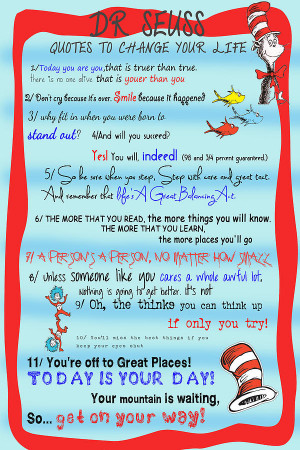 DR SEUSS
QUOTES TO CHANGE YOUR LIFE
1/Today you are you,that is truer than true.
there is no one alive that is youer than you
2/ Don't cry because it's over. Smile because it happened
3/ why fit in when you were born to
stand out? 4/And will you succeed?
Yes! You will, indeed! (98 and 3/4 percent guaranteed.)
5/ So be sure when you step, Step with care and great tact.
And remember that life's A Great Balancing Act.
6/ THE MORE THAT YOU READ, the more things you will know.
THE MORE THAT YOU LEARN,
the more places you'll go
7/ A PERSON'S A PERSON, NO MATTER HOW SMALL
8/ Unless someone like you cares a whole awful lot,
nothing is going to get better. it's not
9/ Oh, the thinks you can think up
if only you try!
10/ You'll miss the best things if you
keep your eyes shut
11/ You're off to Great Places!
TODAY IS YOUR DAY!
Your mountain is waiting,
So... get on your way!